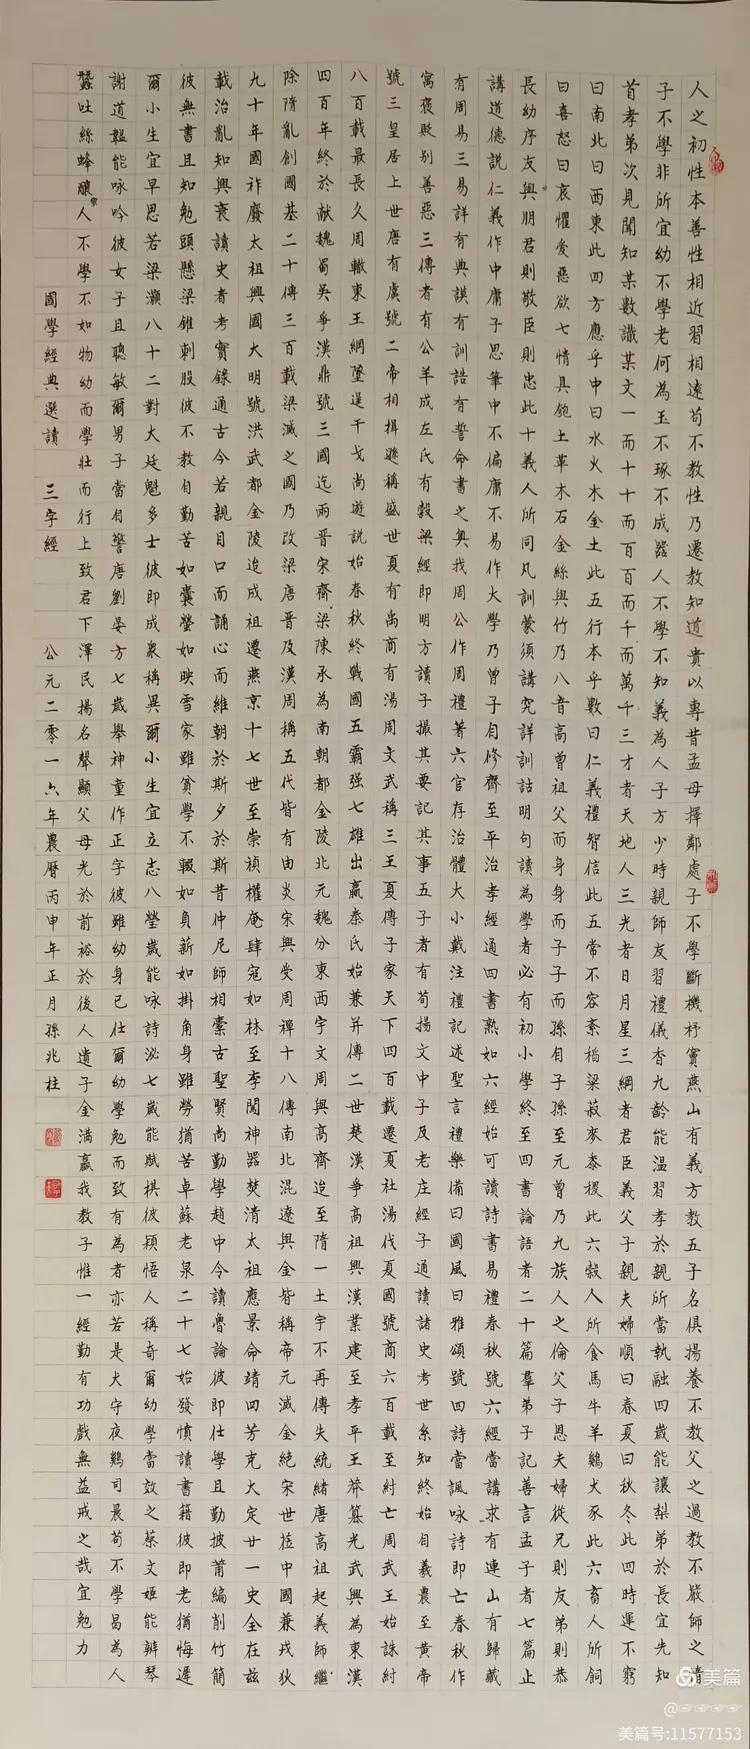 人之初性本善性相近習相遠苟不教性乃遷教知道貴以專昔孟母擇鄰處子不學斷機杼竇燕山有義方教五子名俱揚養不教父之過教不嚴師之惰
子不學非所宜幼不學老何為玉不琢不成器人不學不知義為人子方少時親師友習禮儀香九齡能温習孝於親所當執融四歲能讓梨弟於長宜先知
首孝弟次見聞知某數識某文一而十十而百百而千而萬千三才者天地人三光者日月星三綱者君臣義父子親夫婦順曰春夏曰秋冬此四時運不窮
曰南北曰西東此四方應乎中曰水火木金土此五行本乎數曰仁義禮智信此五常不容紊稻粱菽麥黍稷此六穀人所食馬牛羊鷄犬豕此六畜人所飼
曰喜怒曰哀懼愛惡欲七情具匏土革木石金絲與竹乃八音高曾祖父而身身而子子而孫自子孫至元曾乃九族人之倫父子恩夫婦從兄則友弟則恭
長幼序友與朋君則敬臣則忠此十義人所同凡訓蒙須講究詳訓詁明句讀為學者必有初小學終至四書論語者二十篇羣弟子記善言孟子者七篇止
講道德説仁義作中庸子思筆中不偏庸不易作大學乃曾子自修齊至平治孝經通四書熟如六經始可讀詩書易禮春秋號六經當講求有連山有歸藏
有周易三易詳有典謨有訓誥有誓命書之奥我周公作周禮著六官存治體大小戴注禮記述聖言禮樂備曰國風曰雅頌號四詩當諷咏詩即亡春秋作
寓褒貶别善惡三傳者有公羊成左氏有穀梁經即明方讀子撮其要記其事五子者有荀揚文中子及老庄經子通讀諸史考世系知終始自羲農至黄帝
號三皇居上世唐有虞號二帝相揖遜稱盛世夏有禹商有湯周文武稱三王夏傳子家天下四百載遷夏社湯伐夏國號商六百載至紂亡周武王始誅紂
八百載最長久周轍東王綱墜逞干戈尚遊説始春秋終戰國五霸强七雄出嬴秦氏始兼并傳二世楚漢爭高祖興漢業建至孝平王莽篡光武興為東漢
四百年終於献魏蜀吳爭漢鼎號三國迄兩晋宋齊梁陳承為南朝都金陵北元魏分東西宇文周興高齊迨至隋一土宇不再傳失統緒唐高祖起義師繼
除隋亂創國基二十傳三百載梁滅之國乃改梁唐晋及漢周稱五代皆有由炎宋興受周禪十八傳南北混遼與金皆稱帝元滅金絕宋世莅中國兼戎狄
九十年國祚廢太祖興國大明號洪武都金陵迨成祖遷燕京十七世至崇禎權庵肆寇如林至李闖神器焚清太祖應景命靖四方克大定廿一史全在兹
載治亂知興衰讀史者考實録通古今若親目口而誦心而維朝於斯夕於斯昔仲尼師相橐古聖賢尚勤學趙中令讀魯論彼即仕學且勤披莆編削竹簡
彼無書且知勉頭懸梁錐刺股彼不教自勤苦如囊螢如映雪家雖貧學不輟如負薪如掛角身雖勞猶苦卓蘇老泉二十七始發憤讀書籍彼即老猶悔遲
爾小生宜早思若梁灝八十二對大廷魁多士彼即成衆稱異爾小生宜立志八瑩歲能咏詩泌七歲能賦棋彼穎悟人稱奇爾幼學當效之蔡文姬能辨琴
謝道韞能咏吟彼女子且聰敏爾男子當自警唐劉晏方七歲舉神童作正字彼雖幼身已仕爾幼學勉而致有為者亦若是犬守夜鷄司晨苟不學曷為人
蠶吐絲蜂釀人不學不如物幼而學壯而行上致君下澤民揚名聲顯父母光於前裕於後人遺子金滿嬴我教子惟一經勤有功戲無益戒之哉宜勉力
國學經典選讀 三字經 公元二零一六年農曆丙申年正月孫兆柱
美篇
@☞☞☞☞
美篇号:11577153